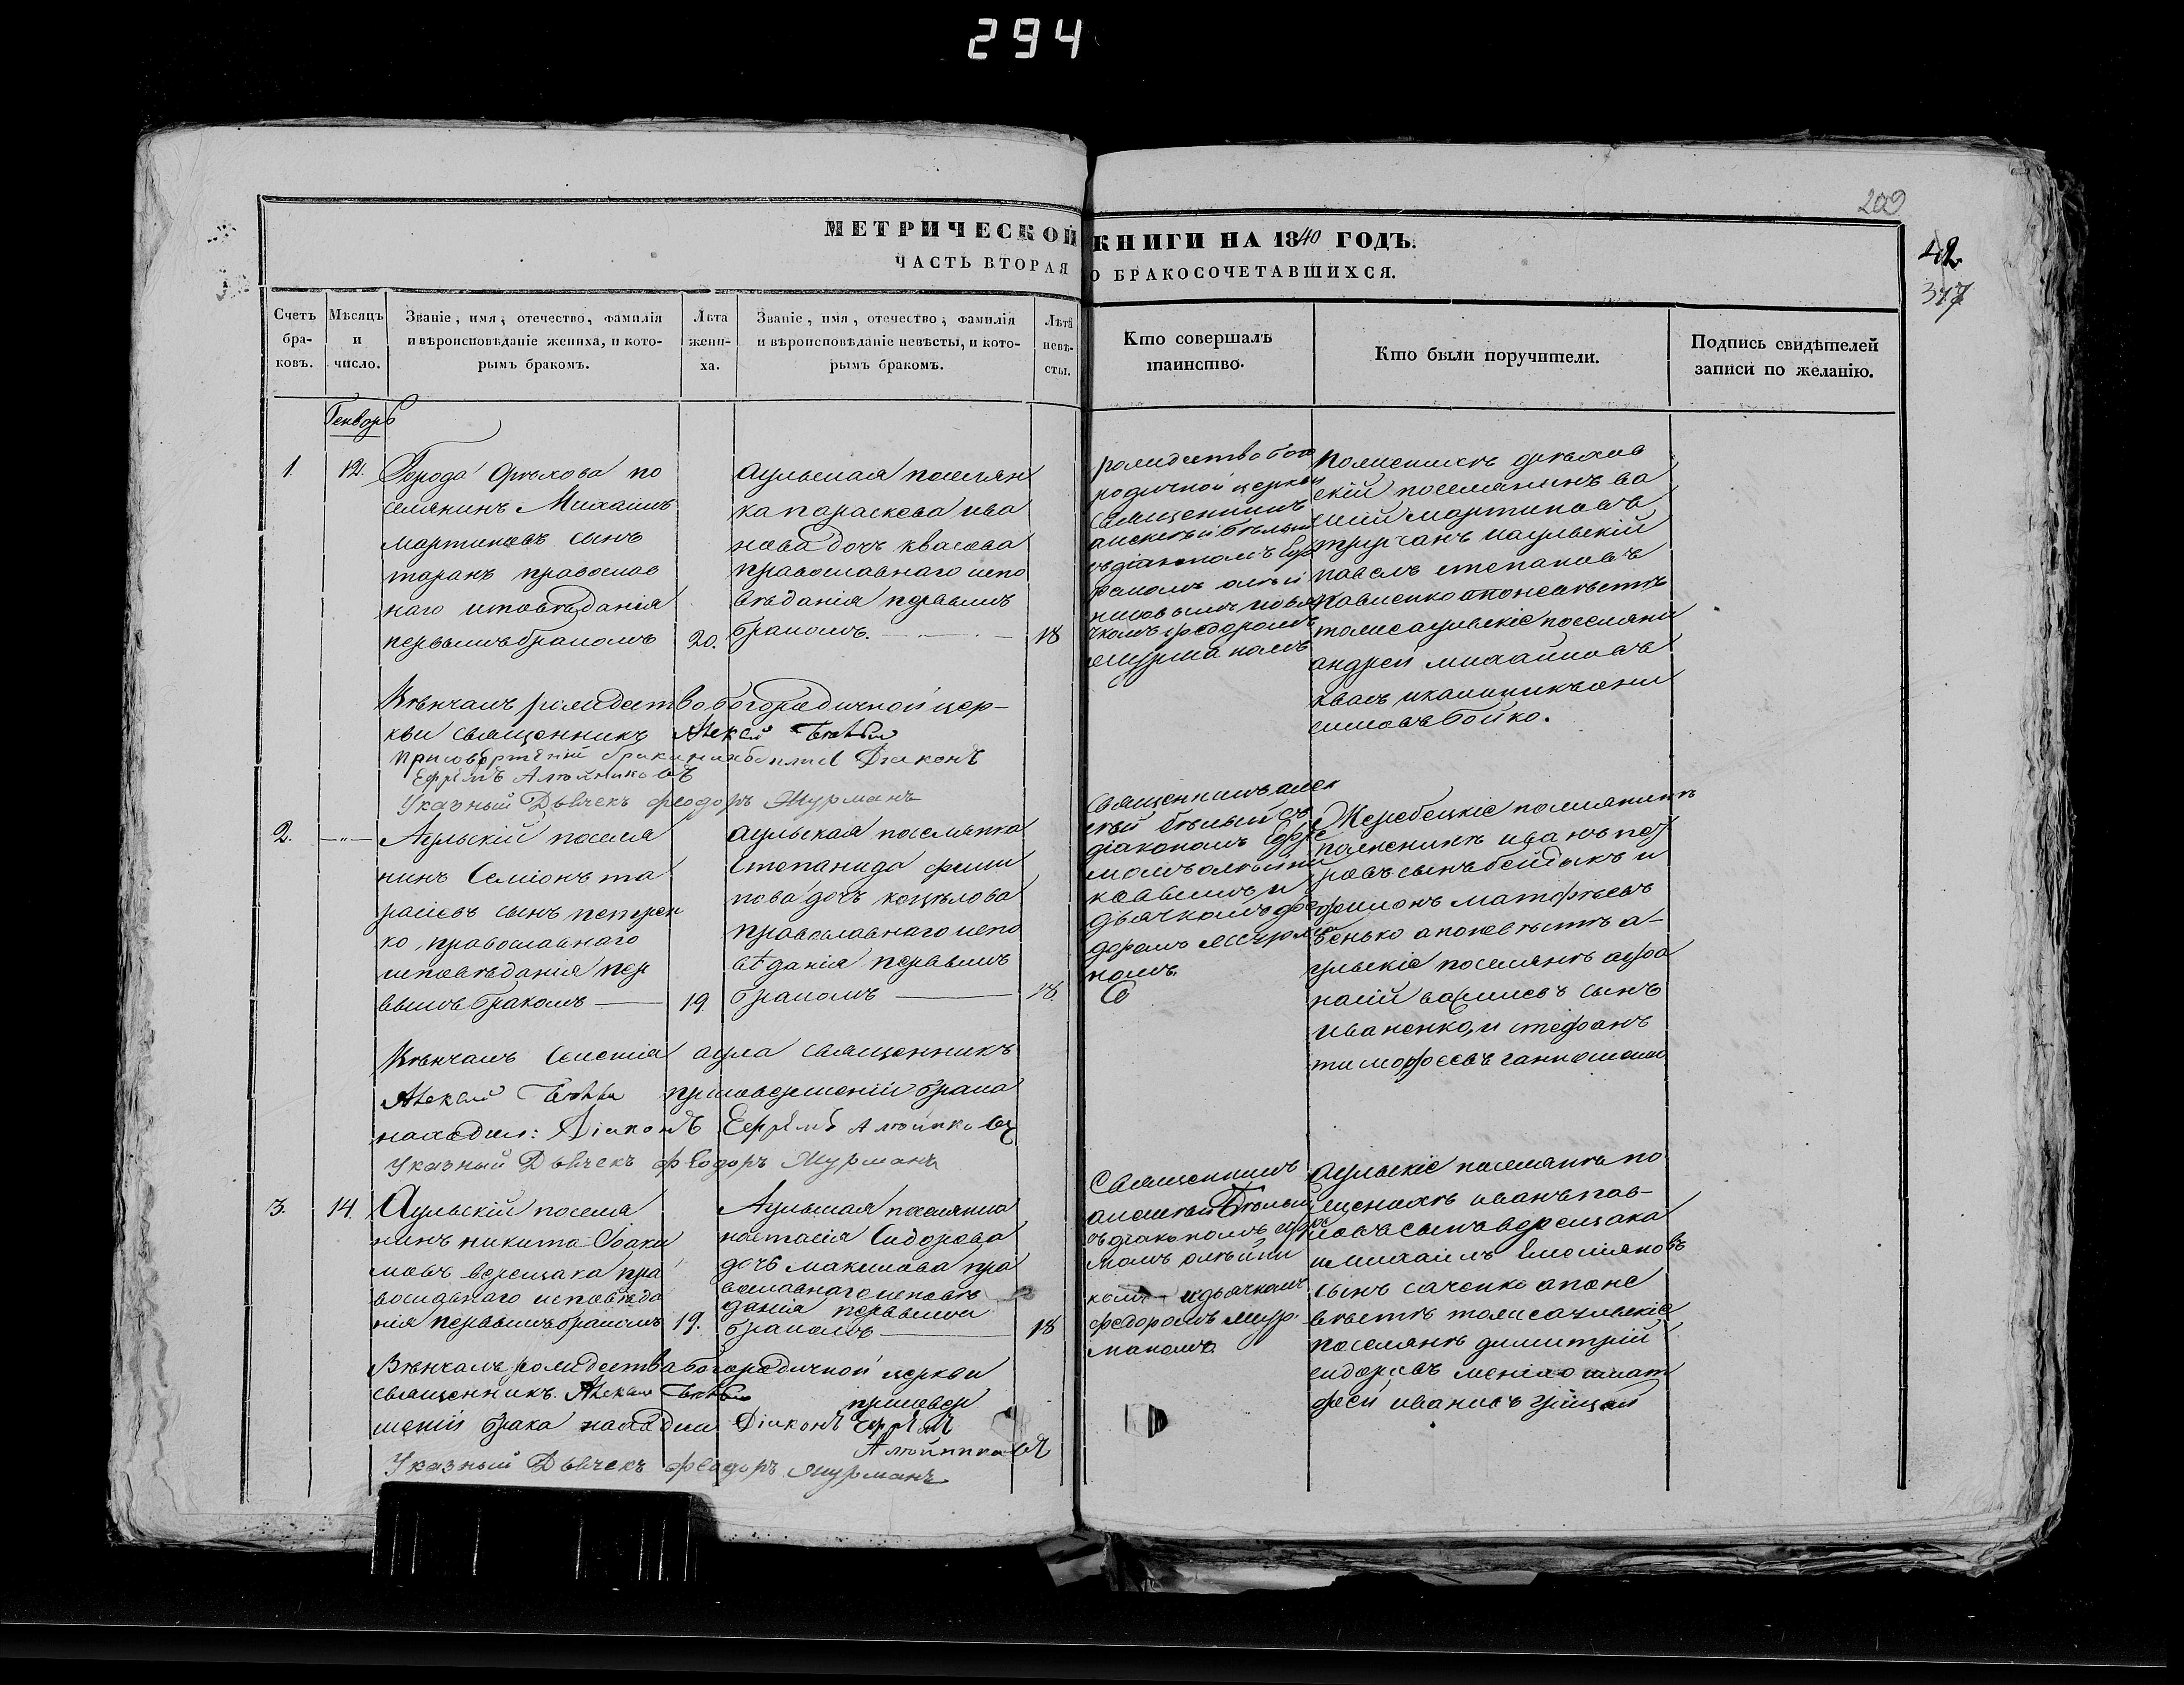 294
209
42
317
МЕТРИЧЕСКОЙ КНИГИ НА 1840 ГОДЪ.
ЧАСТЬ ВТОРАЯ О БРАКОСОЧЕТАВШИХСЯ.
Счетъ бра-ковъ.
Мѣсяцъ и число.
Званіе, имя, отечество, фамилія
и вѣроисповѣданіе жениха, и кото-
рымъ бракомъ.
Лѣта жени-ха.
Званіе, имя, отечество, фамилія
и вѣроисповѣданіе невѣсты, и кото-
рымъ бракомъ.
Лѣта невѣ-сты.
Кто совершалъ
таинство.
Кто были поручители.
Подпись свидѣтелей
записи по желанію.
Генваръ
1.
12.
Города Орѣхова по
селянинъ Михаилъ
мартиновъ сынъ
таранъ православ
наго исповѣданія
первымъ бракомъ
20.
аульская поселян
ка параскева ива
нова дочь квасова
православнаго испо
вѣданія первымъ
бракомъ.
18
рождество бого
родичной церкви
священникъ
алексѣй бѣлый
съ діакономъ Еф
ремомъ алѣй
никовымъ и дья
чкомъ федоромъ
мурманомъ
по женихѣ орѣхов
скій поселянинъ ва
силій мартиновъ
и аульскій
павелъ степановъ
павленко а по невѣстѣ
тоже аульскіе поселяни
андрей михайловъ
квасъ и калиникъ они
симовъ бойко.
Вѣнчалъ рождество богородичной цер-
кви священникъ Алексѣй Бѣлый
при совершеній брака находился Діаконъ
Ефремъ Алѣйниковъ
Указный Дьячекъ феодоръ Мурманъ
2.
—„—
Аульскій поселя
нинъ Семіонъ та
расіевъ сынъ петрен
ко, православнаго
исповѣданія пер
вымъ бракомъ
19.
аульская поселянка
степанида фили
пова дочь коцелова
православнаго испо
вѣданія первымъ
бракомъ
18.
священникъ алек
сѣй бѣлый съ
діакономъ Ефре
момъ алѣйни
ковымъ и
дьячкомъ фео
доромъ Мурма
номъ.
Жеребецкіе поселянинъ
по женихѣ иванъ пет
ровъ сынъ бейдыкъ и
филимонъ матфѣевъ
а по невѣстѣ а-
ульскіе поселянѣ афа
насій василіевъ сынъ
иваненко, и стефанъ
тимофеевъ
Вѣнчалъ селенія аула священникъ
Алексѣй Бѣлый при совершеніи брака
находил: Діаконъ Ефремъ Алѣйниковъ
Указный Дьячекъ феодоръ Мурманъ
3.
14.
Аульскій поселя
нинъ никита Іоаки
мовъ верещака пра
вославнаго исповѣда
нія первымъ бракомъ
19.
Аульская поселянка
настасія Сидорова
дочь максимова пра
вославнаго исповѣ
данія первымъ
бракомъ
18
Священникъ
алексѣй Бѣлый
съ діакономъ ефре
момъ алѣйни
ковы и дьячкомъ
федоромъ мур-
маномъ
аульскіе поселянѣ по
женихѣ иванъ пав-
ловъ сынъ верещака
и михаилъ Емеліяновъ
сынъ саченко а по не
вѣстѣ тоже аульскіе
поселянѣ димитрій
сидоровъ и мат
фей ивановъ грицай
Вѣнчалъ рождества богородичной церкви
священникъ. Алексѣй Бѣлый
при совер
шеніи брака находил Діаконъ Ефремъ
Алѣйниковъ
Указный Дьячекъ феодоръ Мурманъ